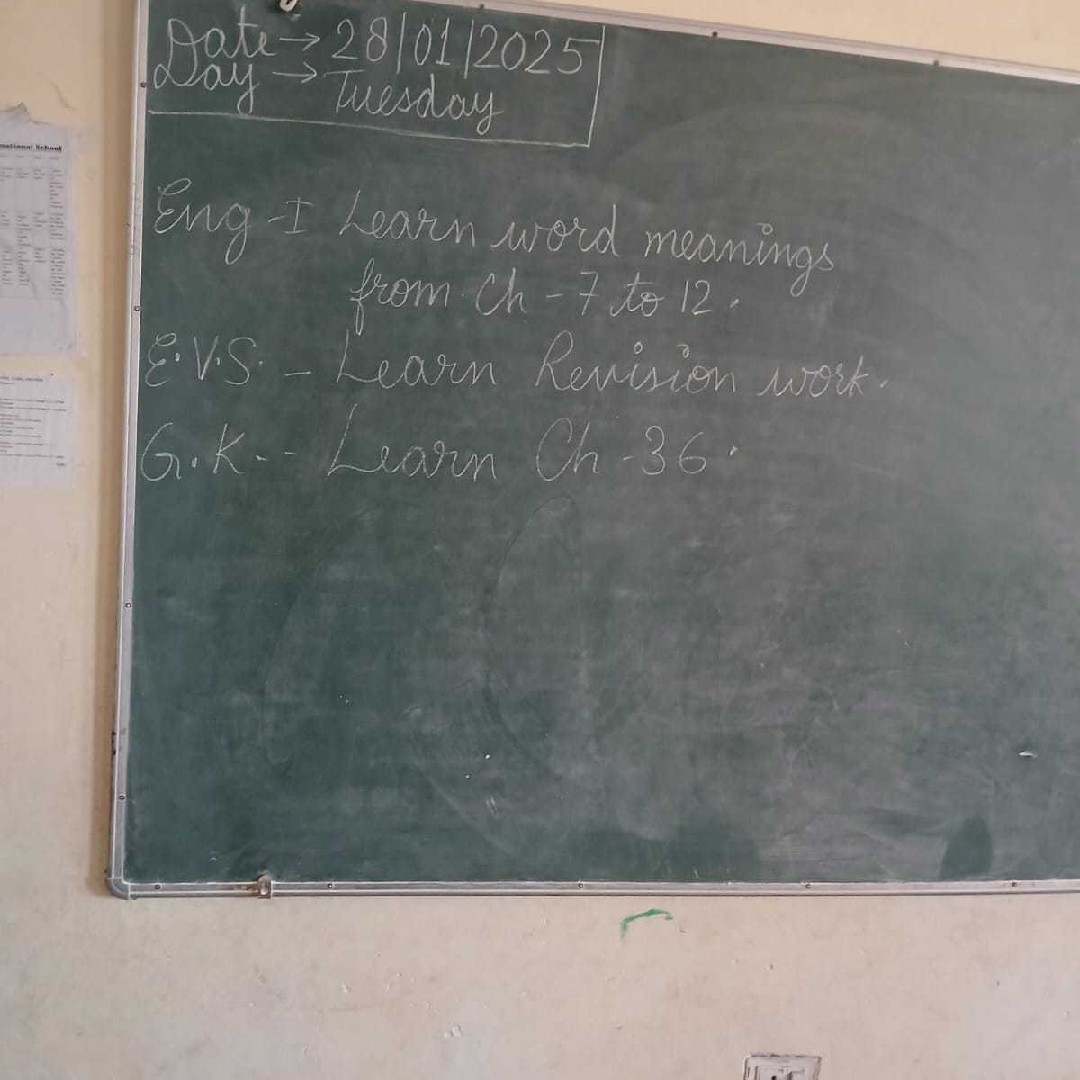 Date → 28/01/2025
Day → Tuesday
Eng - I Learn word meanings
from Ch - 7 to 12.
E.V.S. - Learn Revision work.
G.K. - Learn Ch - 36.
School